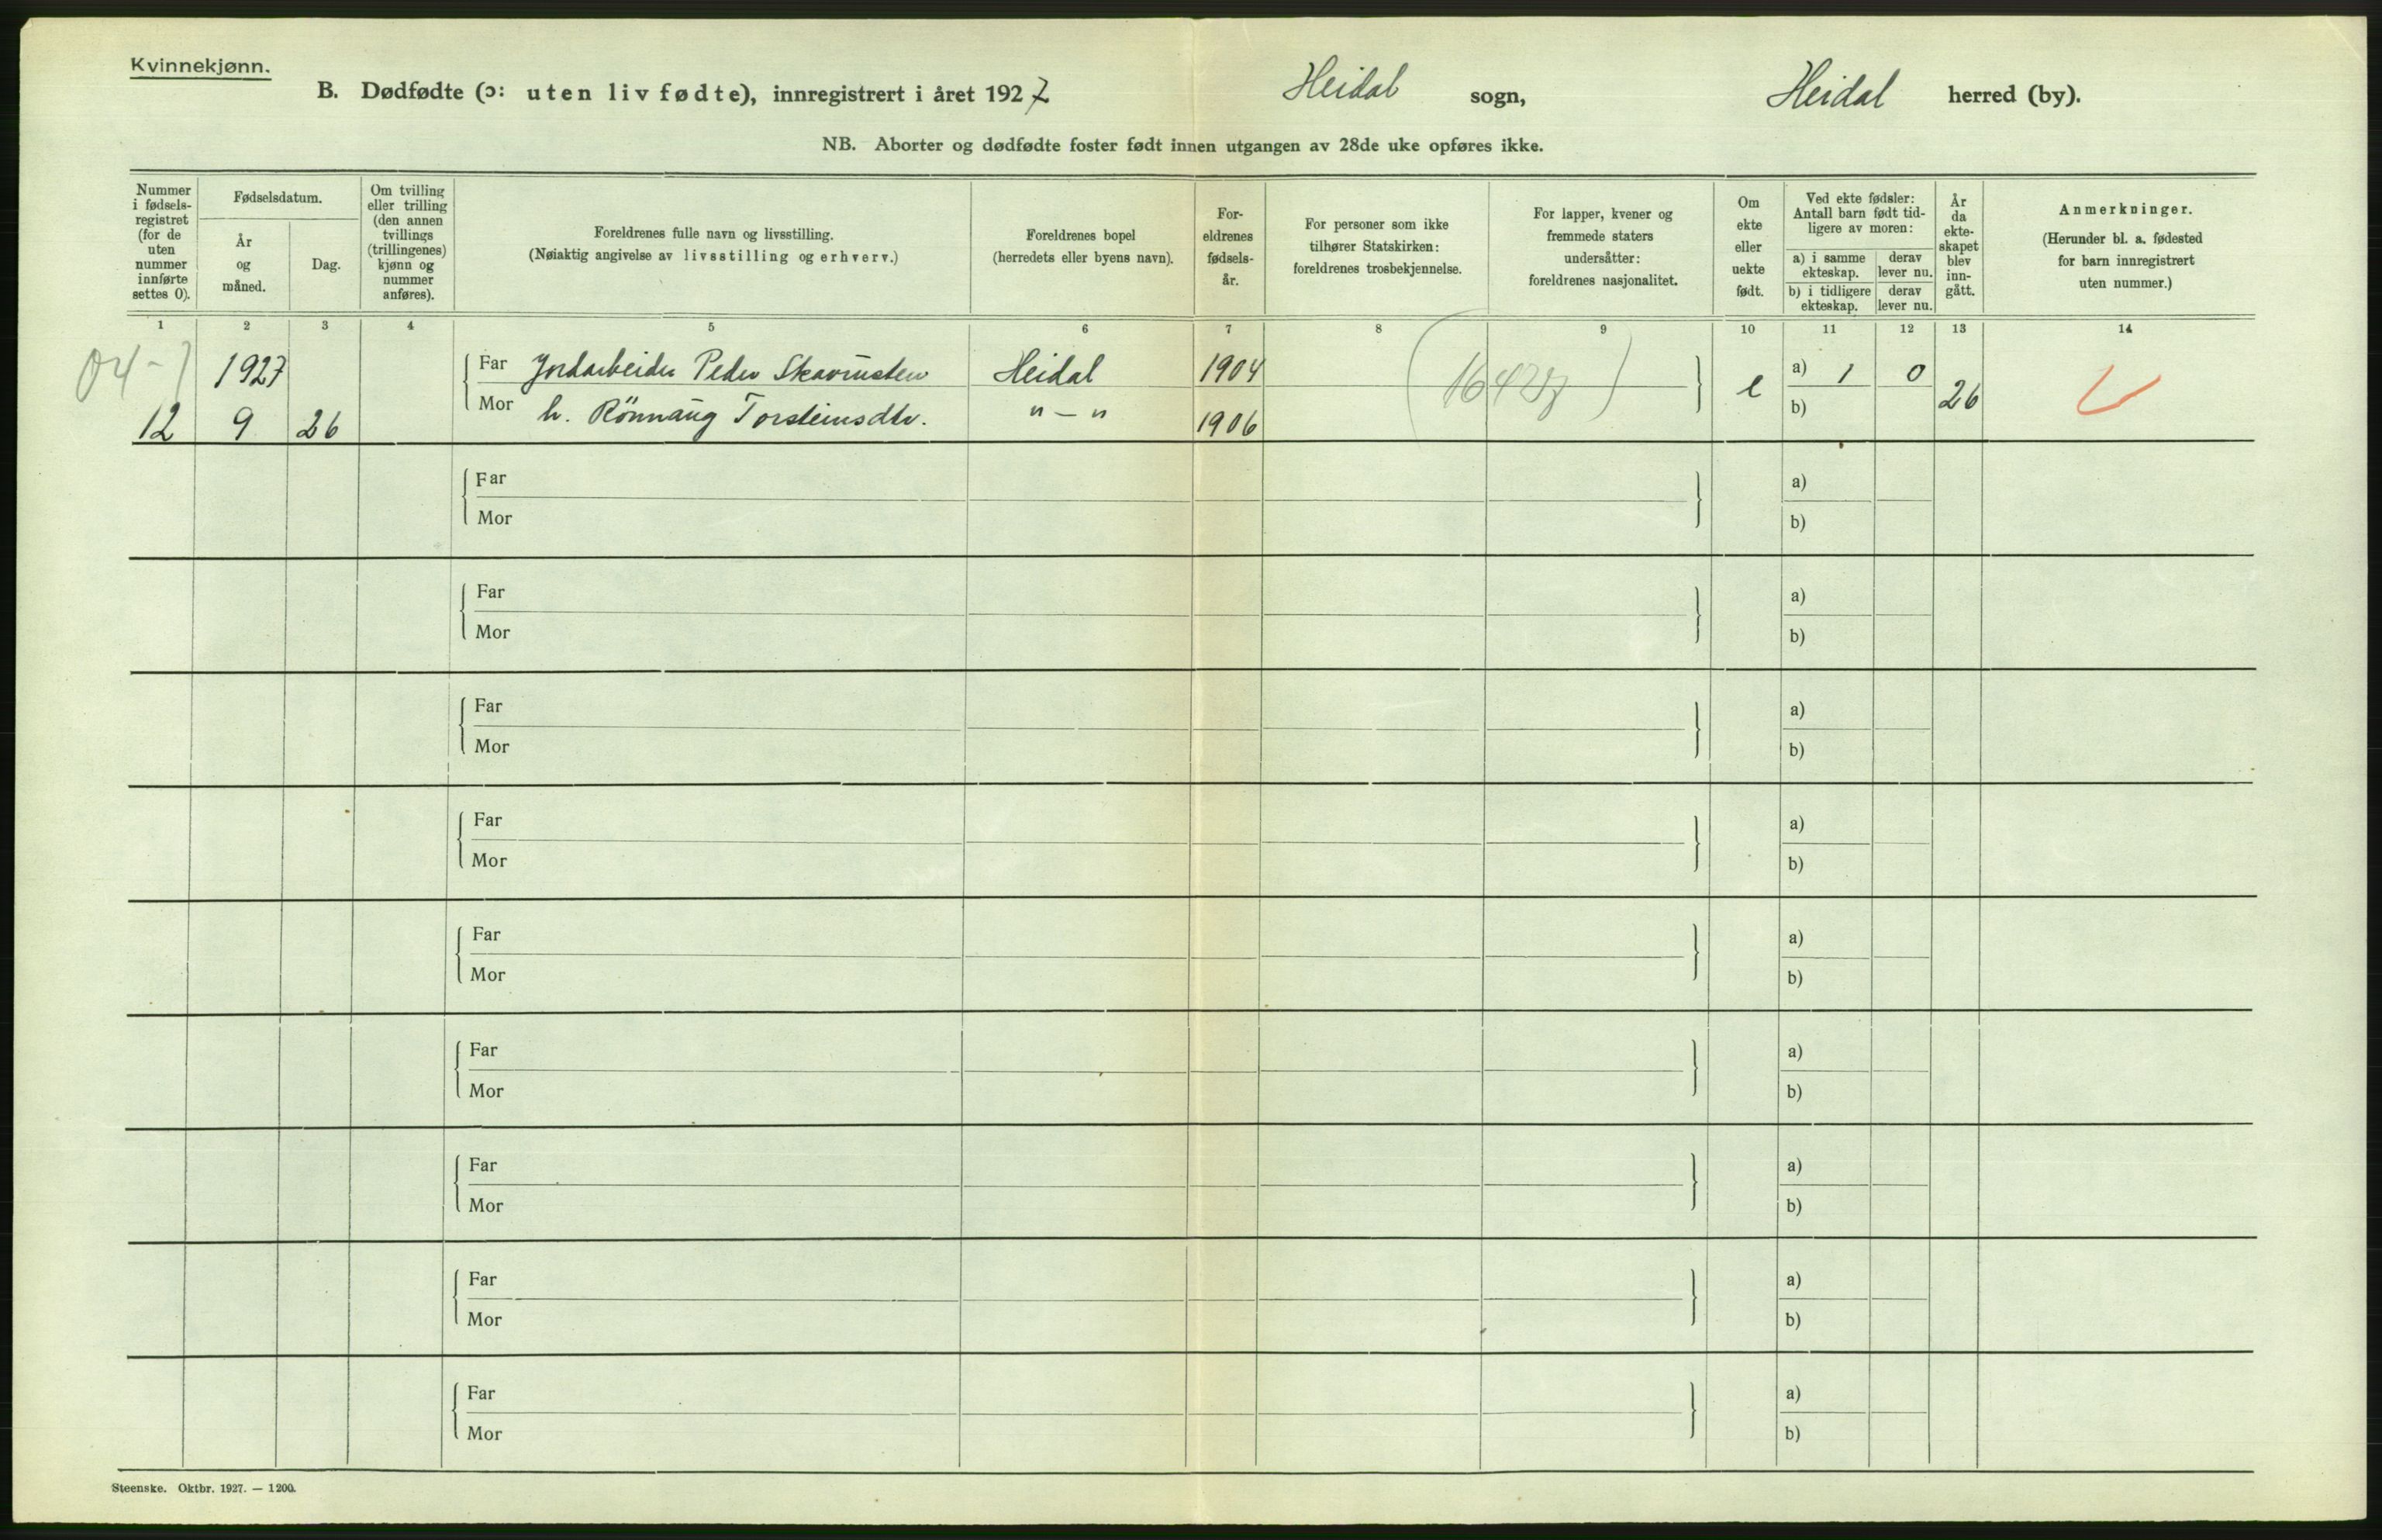 Kvinnekjønn.
B. Dødfødte (ɔ: uten liv fødte), innregistrert i året 1927 Heidal sogn, Heidal herred (by).
NB. Aborter og dødfødte foster født innen utgangen av 28de uke opføres ikke.
Nummer i fødsels-registret (for de uten nummer innførte settes 0).
Fødselsdatum.
År og måned.
Dag.
Om tvilling eller trilling (den annen tvillings (trillingenes) kjønn og nummer anføres).
Foreldrenes fulle navn og livsstilling.
(Nøiaktig angivelse av livsstilling og erhverv.)
Foreldrenes bopel
(herredets eller byens navn).
For-eldrenes fødsels-år.
For personer som ikke tilhører Statskirken: foreldrenes trosbekjennelse.
For lapper, kvener og fremmede staters undersåtter: foreldrenes nasjonalitet.
Om ekte eller uekte født.
Ved ekte fødsler: Antall barn født tid-ligere av moren:
a) i samme ekteskap.
derav lever nu.
b) i tidligere ekteskap.
derav lever nu.
År da ekte-skapet blev inn-gått.
Anmerkninger.
(Herunder bl. a. fødested for barn innregistrert uten nummer.)
1 2 3 4 5 6 7 8 9 10 11 12 13 14
04-1 1927 Far Jordarbeider Peder Heidal 1904 a) 1 0
12 9 26 Mor h. Rönnaug Torsteinsdtr. " — " 1906 e b) 26
Far a)
Mor b)
Far a)
Mor b)
Far a)
Mor b)
Far a)
Mor b)
Far a)
Mor b)
Far a)
Mor b)
Far a)
Mor b)
Far a)
Mor b)
Far a)
Mor b)
Steenske. Oktbr. 1927. — 1200.